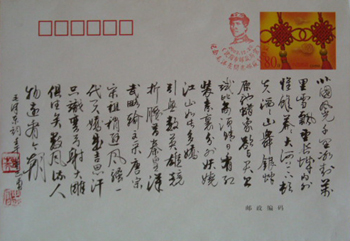 80
北国风光千里冰封万
里雪飘望长城内外
惟余莽莽大河上下顿
失滔滔山舞银蛇
原驰蜡象欲与天公
试比高须晴日看红
装素裹分外妖娆
江山如此多娇
引无数英雄竞
折腰惜秦皇汉
武略输文采唐宗
宋祖稍逊风骚一
代天骄成吉思汗
只识弯弓射大雕
俱往矣数风流人
物还看今朝
毛泽东词
邮政编码